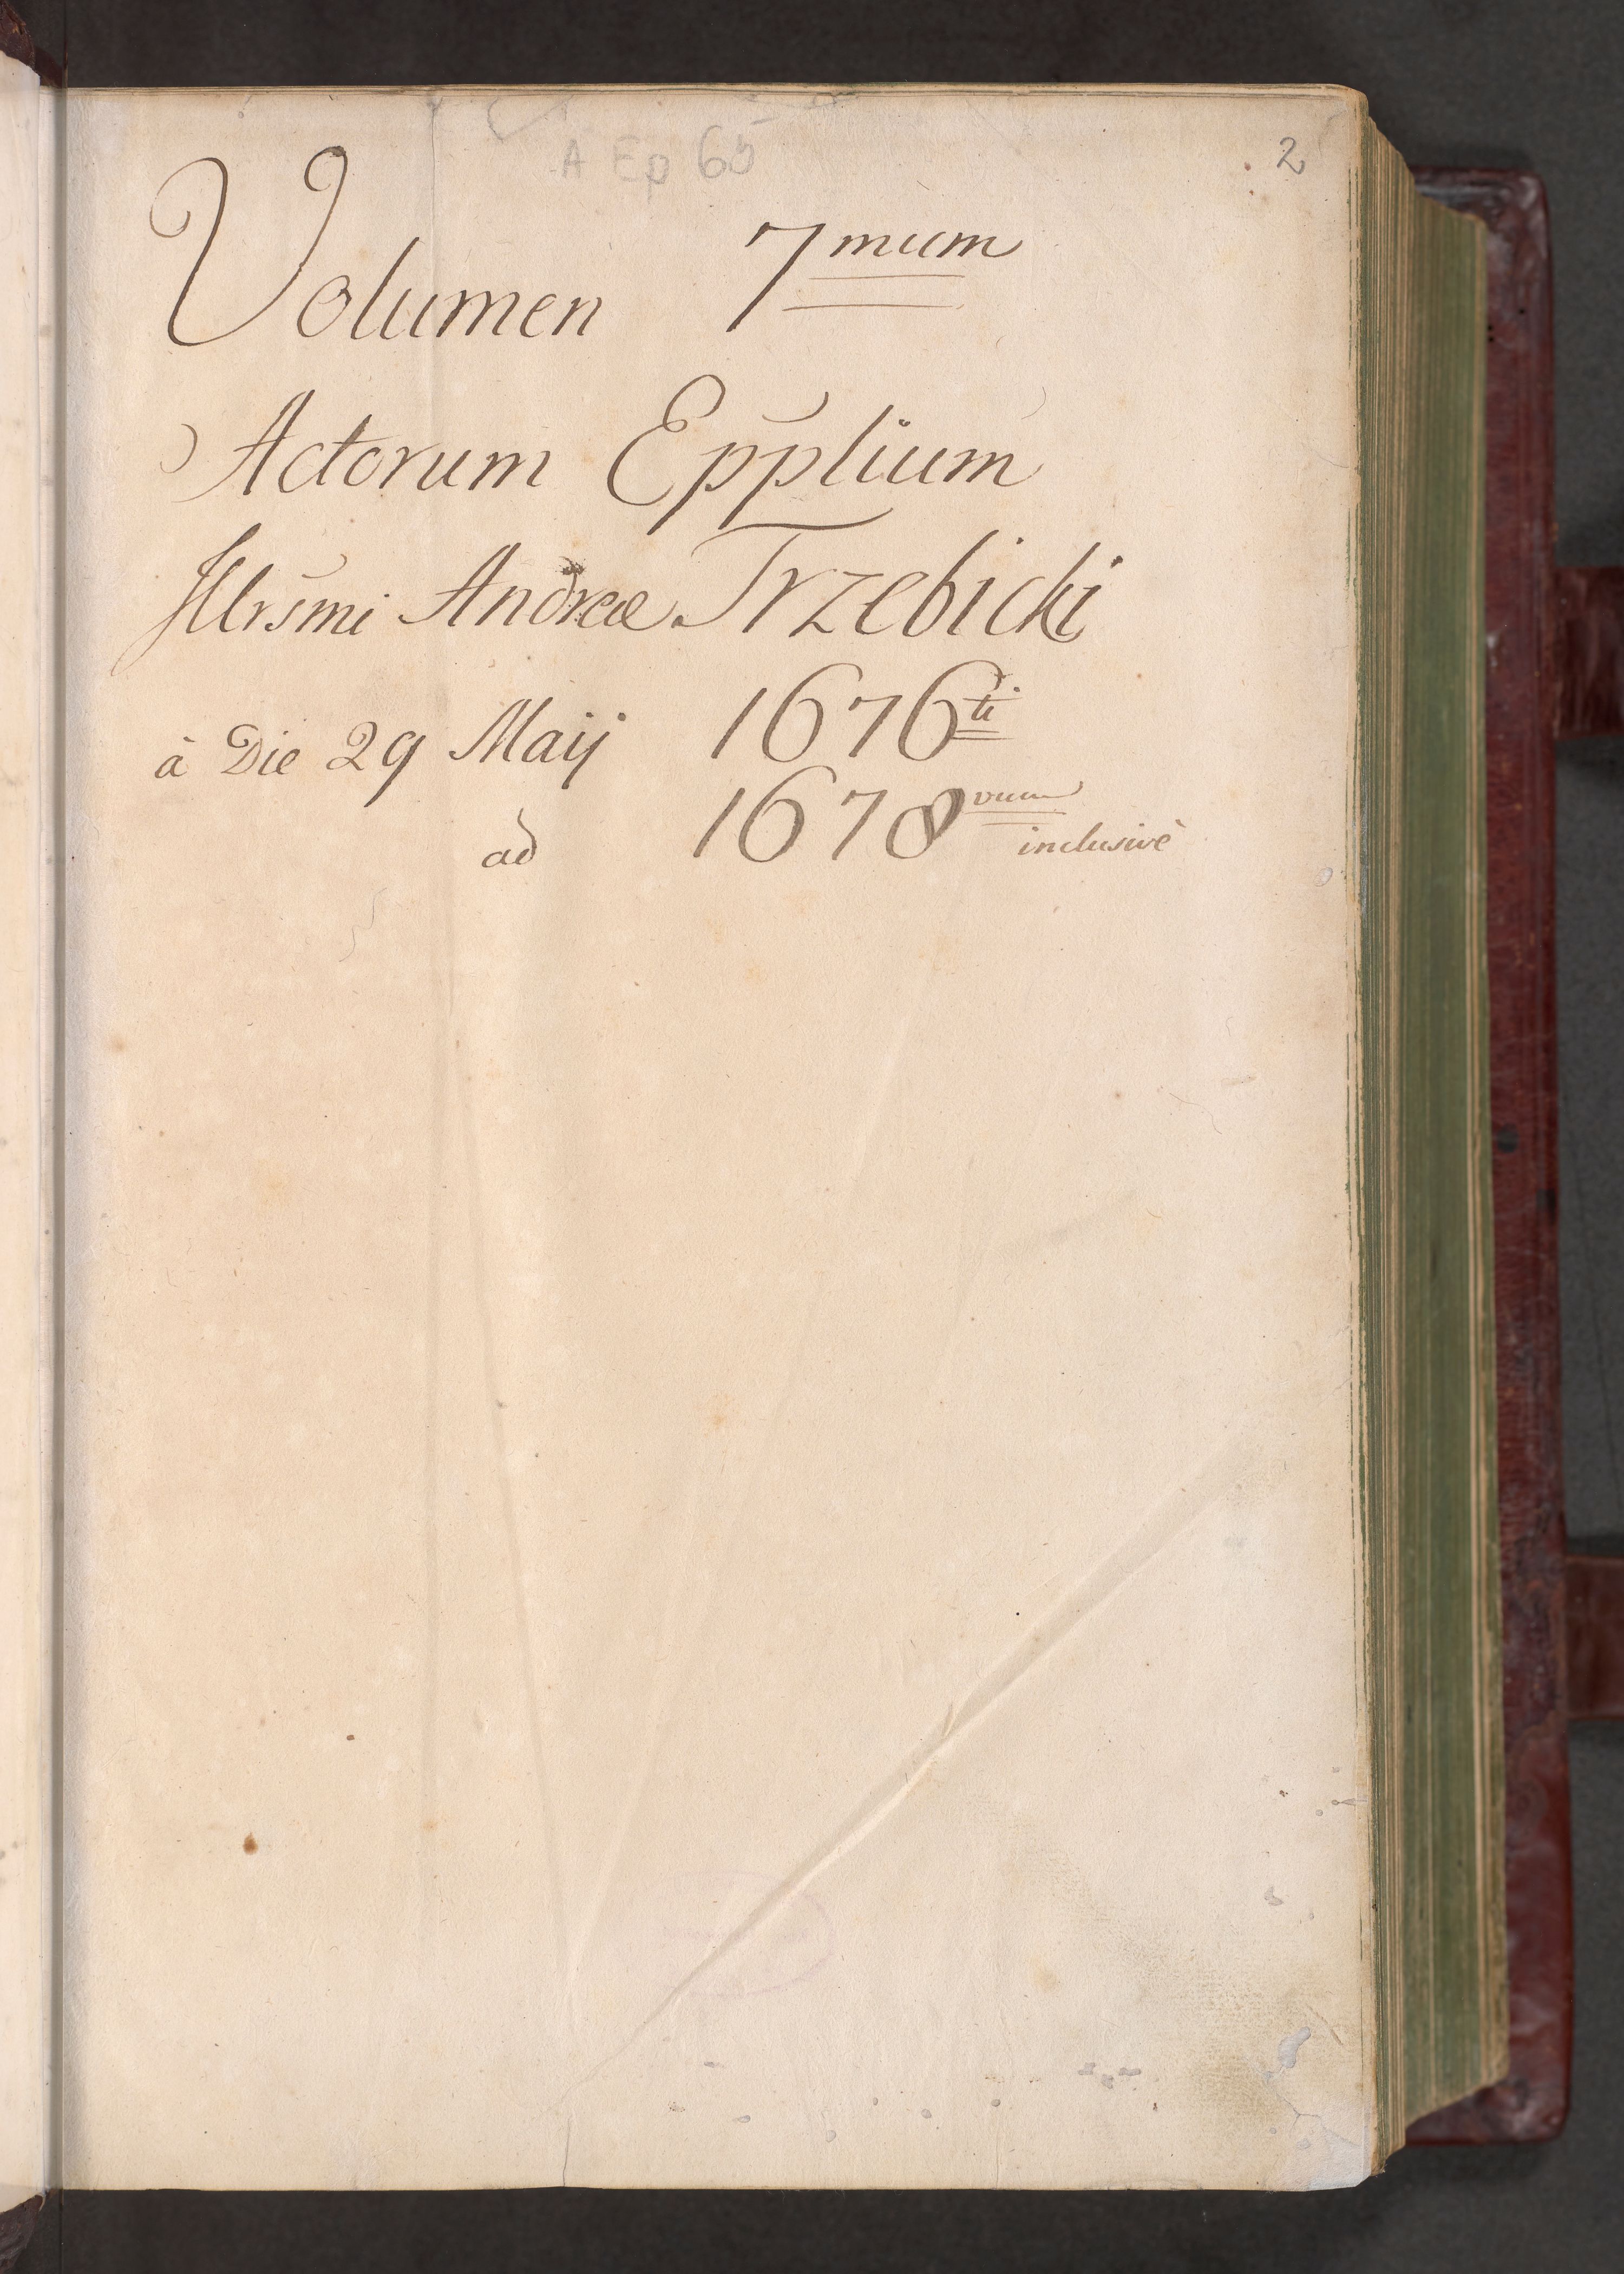 A Ep 65
2
Volumen 7mum
Actorum Epp̃lium
Illrs̃mi Andreæ Trzebicki
à Die 29 Maij 1676ti
ad 1678vum inclusivè